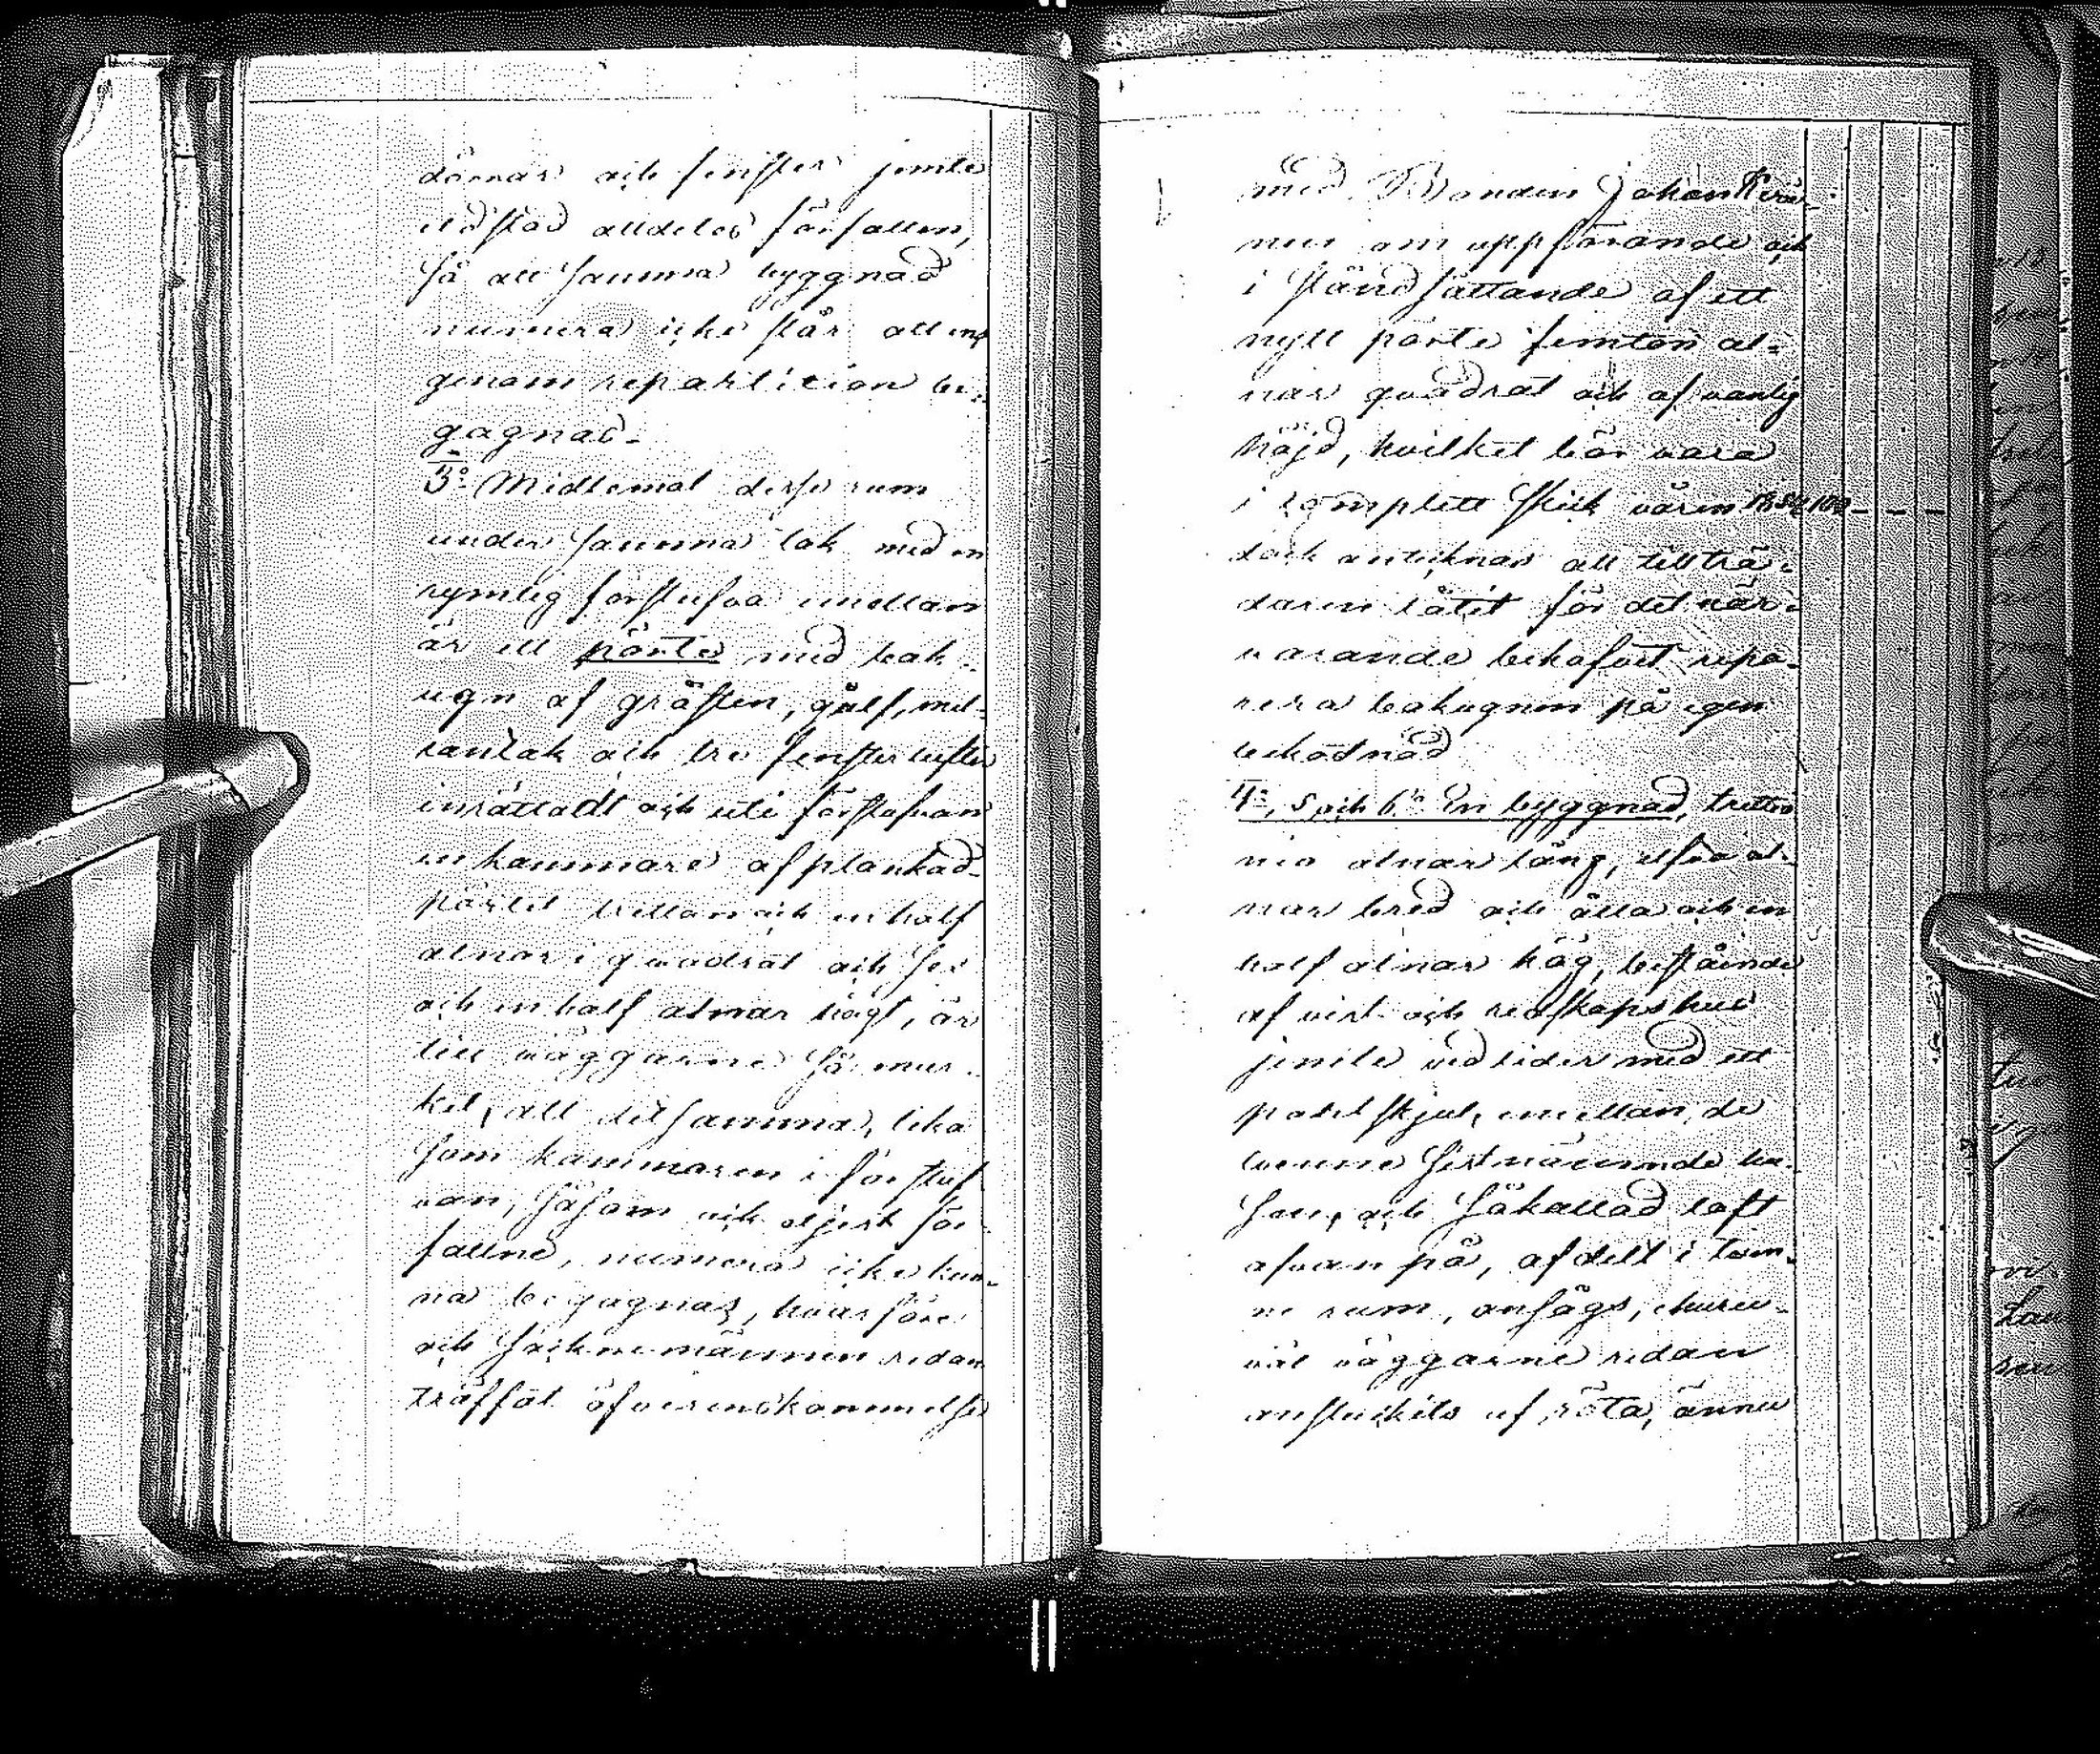 dörrar och fenster jemte
eldstad alldeles förfallen,
så att samma byggnad
numera icke står att ens
genom repartition be-
gagnas.
3º Midtemot desse rum
under samma tak med en
rymlig förstufva emellan
är ett pörte med bak-
ugn af gråsten, gålf, mel-
lantak och tre fensterlufter
inrättadt och uti förstufvan
en kammare af plankad
pörtet tretton och en half
alnar i quadrat och sex
och en half alnar högt, är
till väggarne så mur-
ket, att detsamma, lika
som kammaren i förstuf-
van, såsom och eljest för-
fallne, numera icke kun-
na begagnas, hvarföre
och Socknemännen redan
träffat öfverenskommelse
med Bonden Johan
om uppförande och
i ståndsättande af ett
nytt pörte femton al-
nar quadrat och af vanlig
höjd, hvilket bör vara
i complett skick våren - - -
dock antecknas att tillträ-
daren låtit för det när-
varande bekofvet repa-
rera bakugnen på egen
bekostnad
4º, 5 och 6º En byggnad, trettio
nio alnar lång, elfva al-
nar bred och åtta och en
half alnar hög, bestående
af vist- och redskapshus
jemte vedlider med ett
portskjul, emellan de
tvenne sistnämnde hu-
sen, och såkallad loft
ofvan på, afdelt i tven-
ne rum, ansågs, ehuru-
väl väggarne redan
anstuckits af röta, ännu